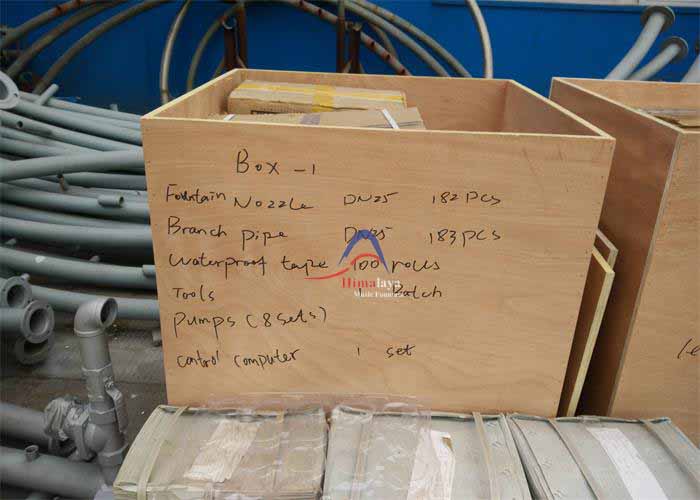 Box -1
Fountain Nozzle DN25 182 pcs
Branch pipe DN25 183 pcs
Waterproof tape 100 rolls
Himalaya
Music Fountain
Tools Batch
Pumps (8 sets)
control computer 1 set